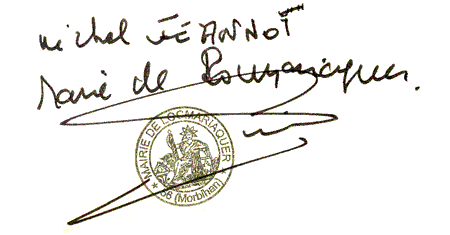 Michel JEANNOT
Maire de Locmariaquer.
MAIRIE DE LOCMARIAQUER
56 (Morbihan)